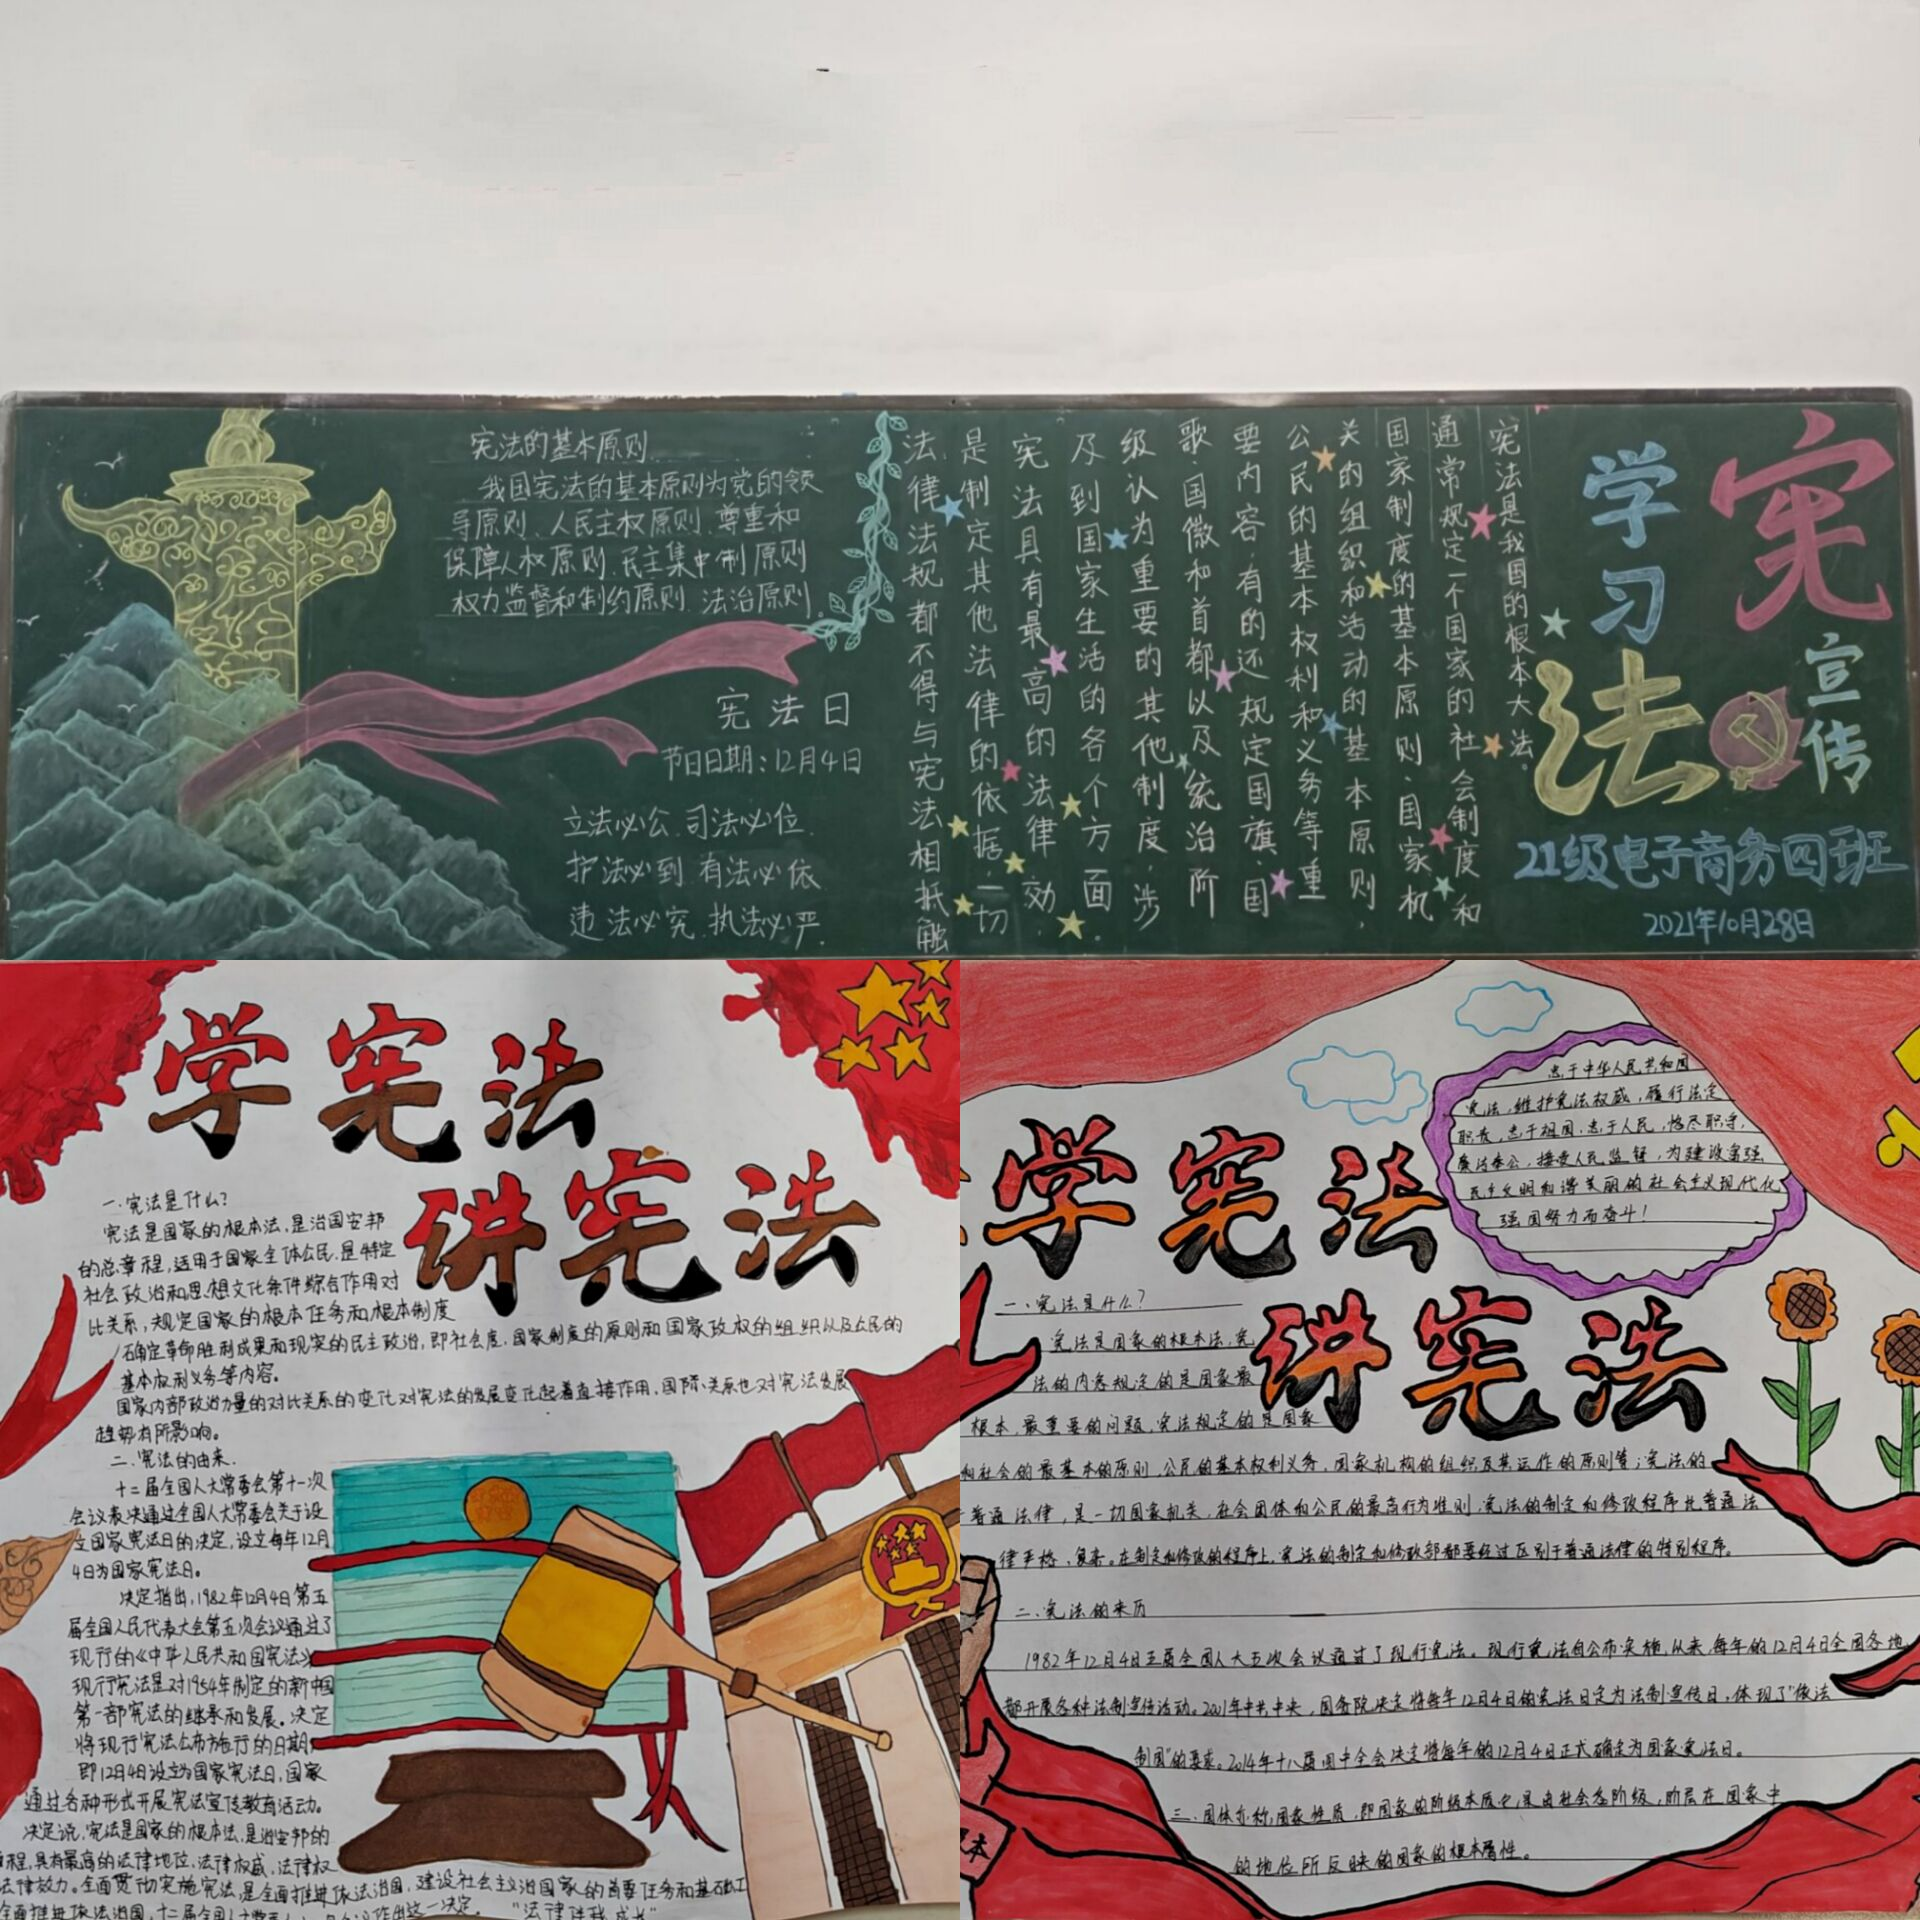 宪法的基本原则
我国宪法的基本原则为党的领
导原则、人民主权原则、尊重和
保障人权原则、民主集中制原则
权力监督和制约原则、法治原则。
宪法日
节日日期：12月4日
立法必公、司法必位、
护法必到、有法必依
违法必究、执法必严.
学习
宪
法
宣传
21级电子商务四班
2021年10月28日
宪法是我国的根本大法。
通常规定一个国家的社会制度和
国家制度的基本原则、国家机
关的组织和活动的基本原则，
公民的基本权利和义务等重
要内容，有的还规定国旗、国
歌、国徽和首都以及统治阶
级认为重要的其他制度，涉
及到国家生活的各个方面.
宪法具有最高的法律效
是制定其他法律的依据，一切
法律法规都不得与宪法相抵触
学宪法
讲宪法
一.宪法是什么?
宪法是国家的根本法,是治国安邦
的总章程,适用于国家全体公民,是特定
社会政治和思想文化条件综合作用对
比关系,规定国家的根本任务和根本制度
确定革命胜利成果和现实的民主政治,即社会度、国家制度的原则和国家政权的组织以及公民的
基本权利义务等内容。
国家内部政治力量的对比关系的变化对宪法的发展变化起着直接作用,国际关系也对宪法发展
趋势有所影响。
二.宪法的由来.
十二届全国人大常委会第十一次
会议表决通过全国人大常委会关于设
立国家宪法日的决定,设立每年12月
4日为国家宪法日。
决定指出,1982年12月4日第五
届全国人民代表大会第五次会议通过了
现行的《中华人民共和国宪法》
现行宪法是对1954年制定的新中国
第一部宪法的继承和发展。决定
将现行宪法公布施行的日期,
即12月4日设立为国家宪法日,国家
通过各种形式开展宪法宣传教育活动。
决定说,宪法是国家的根本法,是治安邦的
程,具有最高的法律地位,法律权威,法律权
法律效力。全面贯彻实施宪法,是全面推进依法治国,建设社会主义法治国家的首要任务和基础工
全面推进依法治国,十二届全国人大常 作出这一决定。 "法律伴我成长"
学宪法
讲宪法
忠于中华人民共和国
宪法,维护宪法权威,履行法定
职责,忠于祖国、忠于人民,恪尽职守,
廉洁奉公,接受人民监督,为建设富强
民主文明和谐美丽的社会主义现代化
强国努力而奋斗!
一、宪法是什么?
宪法是国家的根本法,宪
法的内容规定的是国家最
根本,最重要的问题,宪法规定的是国家
和社会的最基本的原则,公民的基本权利义务,国家机构的组织及其运作的原则等;宪法的
普通法律,是一切国家机关,社会团体和公民的最高行为准则,宪法的制定和修改程序比普通法
律严格、复杂。在制定和修改的程序上,宪法的制定和修改部都要经过区别于普通法律的特别程序。
二、宪法的来历
1982年12月4日五届全国人大五次会议通过了现行宪法。现行宪法自公布实施以来,每年的12月4日全国各地
都开展各种法制宣传活动。2001年中共中央,国务院决定将每年12月4日的宪法日定为法制宣传日,体现了"依法
制国"的要求。2014年十八届四中全会决定将每年的12月4日正式确定为国家宪法日。
三、国体亦称,国家性质,即国家的阶级本质它,是由社会各阶级,阶层在国家中
的地位所反映的国家的根本属性。
本